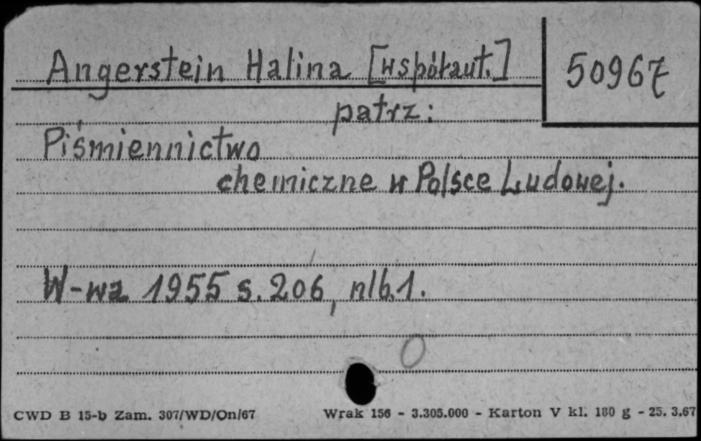 Angerstein Halina [współaut.]
5096Z
patrz:
Piśmiennictwo
chemiczne w Polsce Ludowej.
W-wa 1955 s. 206, nlb. 1.
0
CWD B 15-b Zam. 307/WD/On/67
Wrak 156 - 3.305.000 - Karton V kl. 180 g - 25. 3.67